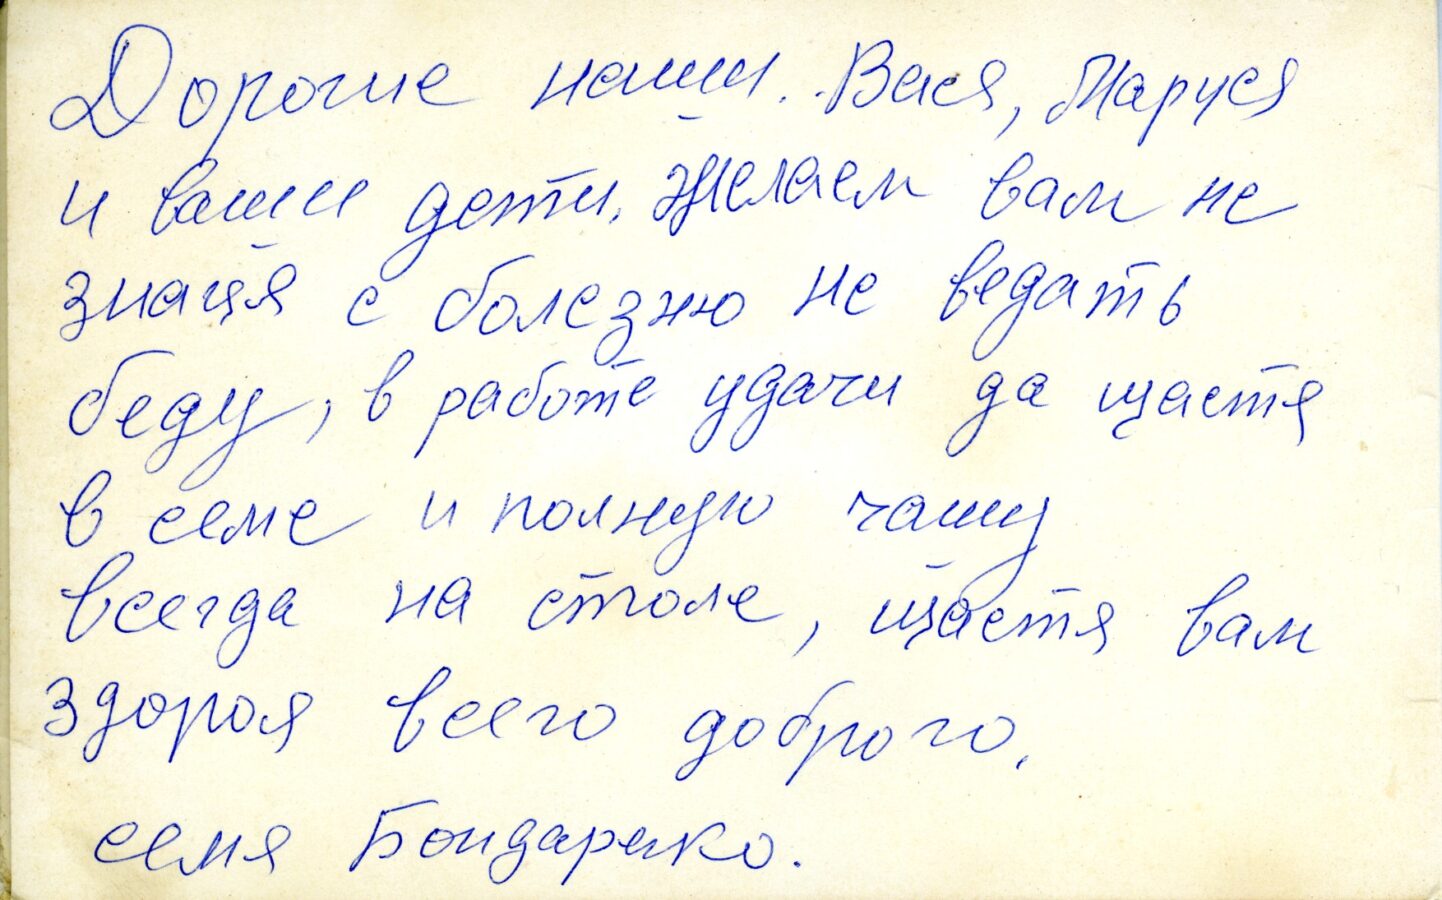 Дорогие наши. Вася, Маруся
и ваши дети. Желаем вам не
знаця с болезню не ведать
беду, в работе удачи да щастя
в семе и полную чашу
всегда на столе, щастя вам
здоровя всего доброго.
семя Бондаренко.